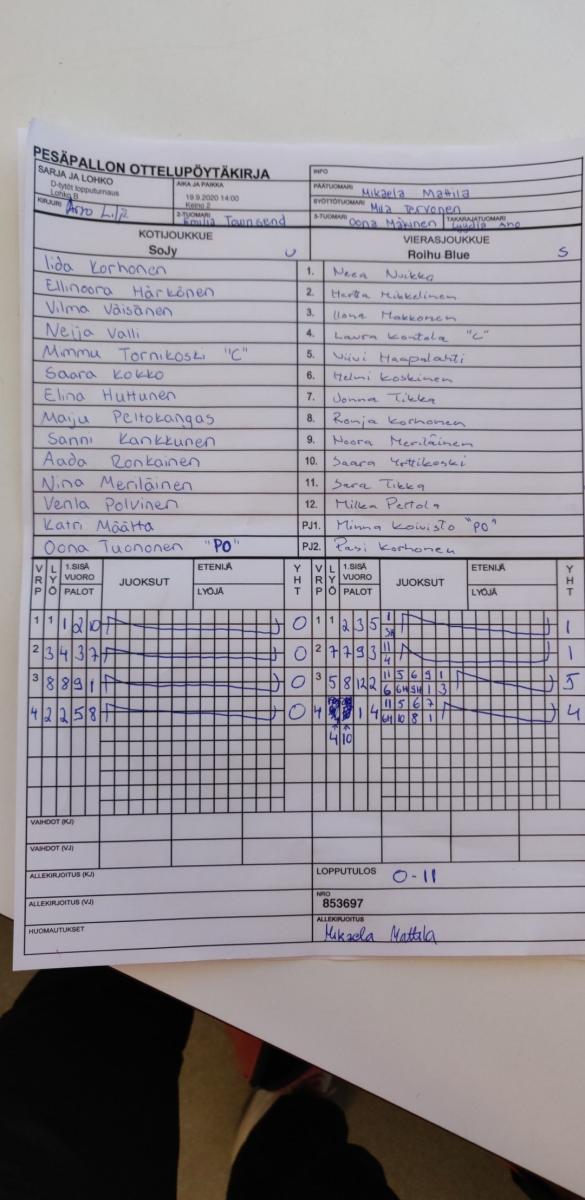 PESÄPALLON OTTELUPÖYTÄKIRJA
SARJA JA LOHKO
D-tytöt lopputurnaus
Lohko B
AIKA JA PAIKKA
19.9.2020 14:00
Keino 2
INFO
PÄÄTUOMARI Mikaela Mattila
SYÖTTÖTUOMARI Mila Tervonen
KIRJURI Arro
2-TUOMARI Emilia Townsend
3-TUOMARI Oona Mäkinen
TAKARAJATUOMARI
KOTIJOUKKUE
SoJy U
VIERASJOUKKUE
Roihu Blue S
Iida Korhonen 1. Neea Nuikka
Ellinoora Härkönen 2. Hertta Mikkelinen
Vilma Väisänen 3. Ilona Makkonen
Neija Valli 4. Laura Kontola "C"
Mimmu Tornikoski "C" 5. Viivi Haapalahti
Saara Kokko 6. Helmi Koskinen
Elina Huttunen 7. Jonna Tikka
Maiju Peltokangas 8. Ronja Korhonen
Sanni Kankkunen 9. Noora Meriläinen
Aada Ronkainen 10. Saara Yrttikoski
Nina Meriläinen 11. Sara Tikka
Venla Polvinen 12. Milka Pertola
Katri Määttä PJ1. Minna Koivisto "PO"
Oona Tuononen "PO" PJ2. Pasi Korhonen
VRP LYÖ 1.SISÄ VUORO PALOT JUOKSUT ETENIJÄ LYÖJÄ YHT VRP LYÖ 1.SISÄ VUORO PALOT JUOKSUT ETENIJÄ LYÖJÄ YHT
1 1 1 2 10 0 1 1 2 3 5 1 1
2 3 4 3 7 0 2 7 7 9 3 11 1
4
3 8 8 9 1 0 3 5 8 12 2 11 5 6 9 1 5
4 2 2 5 8 0 4 1 4 11 5 6 7 4
6H 10 8 1
4 10
VAIHDOT (KJ)
VAIHDOT (VJ)
ALLEKIRJOITUS (KJ)
LOPPUTULOS 0-11
ALLEKIRJOITUS (VJ)
NRO
853697
HUOMAUTUKSET
ALLEKIRJOITUS
Mikaela Mattila